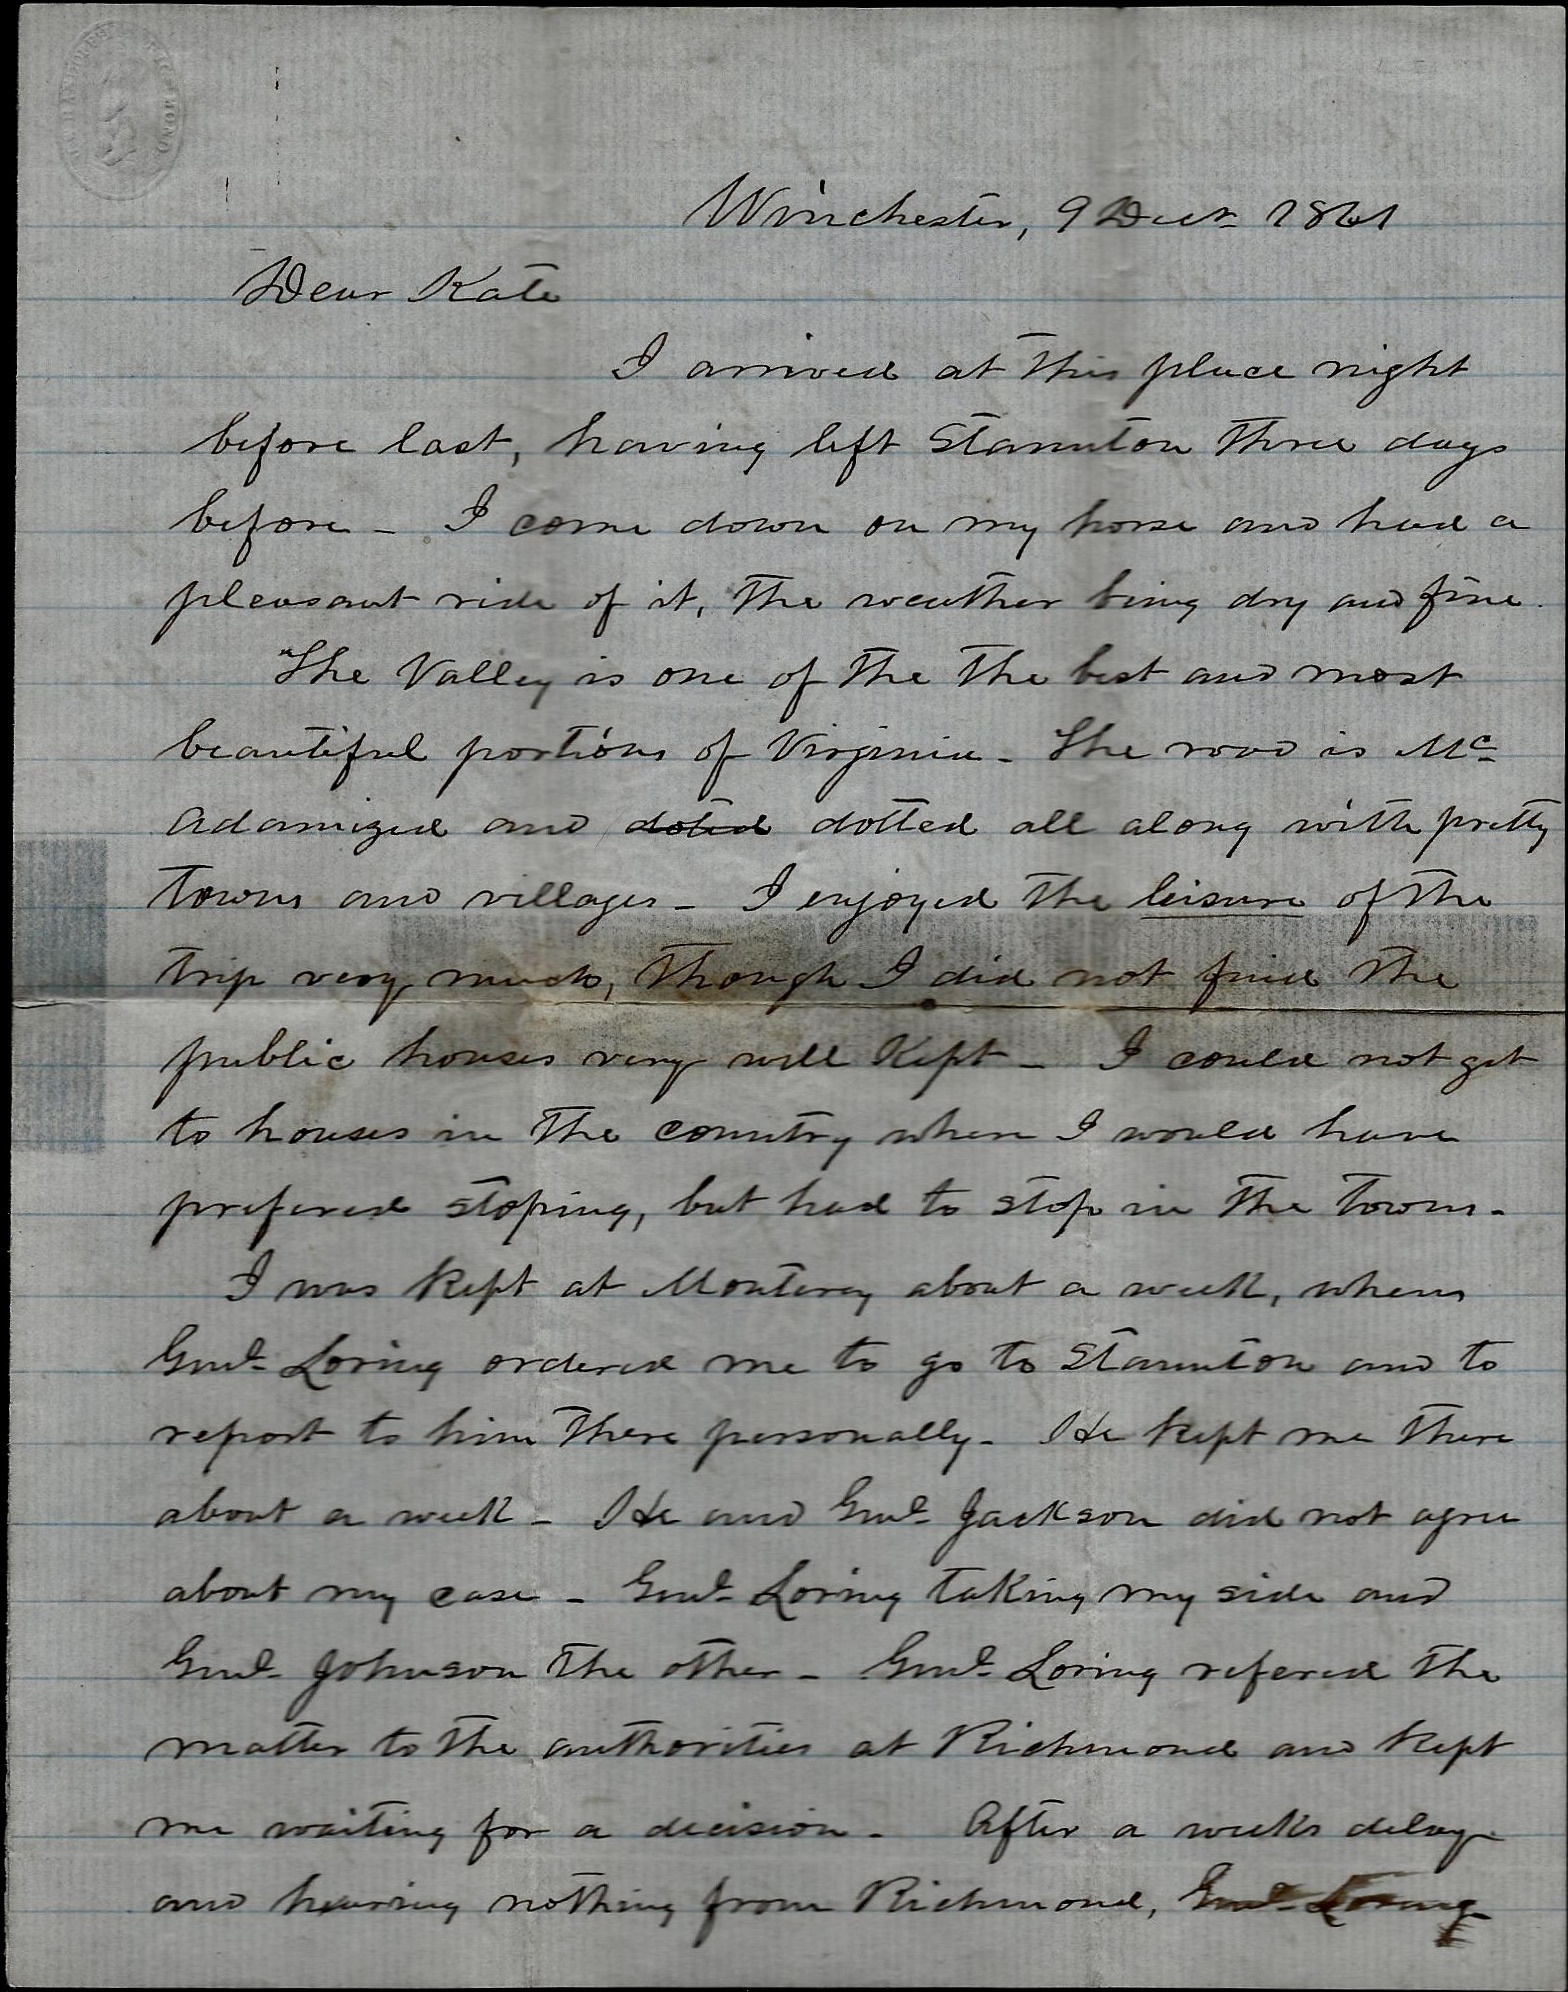 Winchester, 9 Decr 1861
Dear Kate
I arrived at this place night
before last, having left Staunton three days
before - I come down on my horse and had a
pleasant ride of it, the weather being dry and fine.
The Valley is one of the the best and most
beautiful portions of Virginia - The road is Mc
Adamized and doted dotted all along with pretty
towns and villages - I enjoyed the leisure of the
trip very much, though I did not find the
public houses very well kept - I could not get
to houses in the country where I would have
prefered stoping, but had to stop in the towns -
I was kept at Monterey about a week, when
Genl Loring ordered me to go to Staunton and to
report to him there personally - He kept me there
about a week - He and Genl Jackson did not agree
about my case - Genl Loring taking my side and
Genl Johnson the other - Genl Loring refered the
matter to the authorities at Richmond and kept
me waiting for a decision - After a weeks delay
and hearing nothing from Richmond, Genl Loring